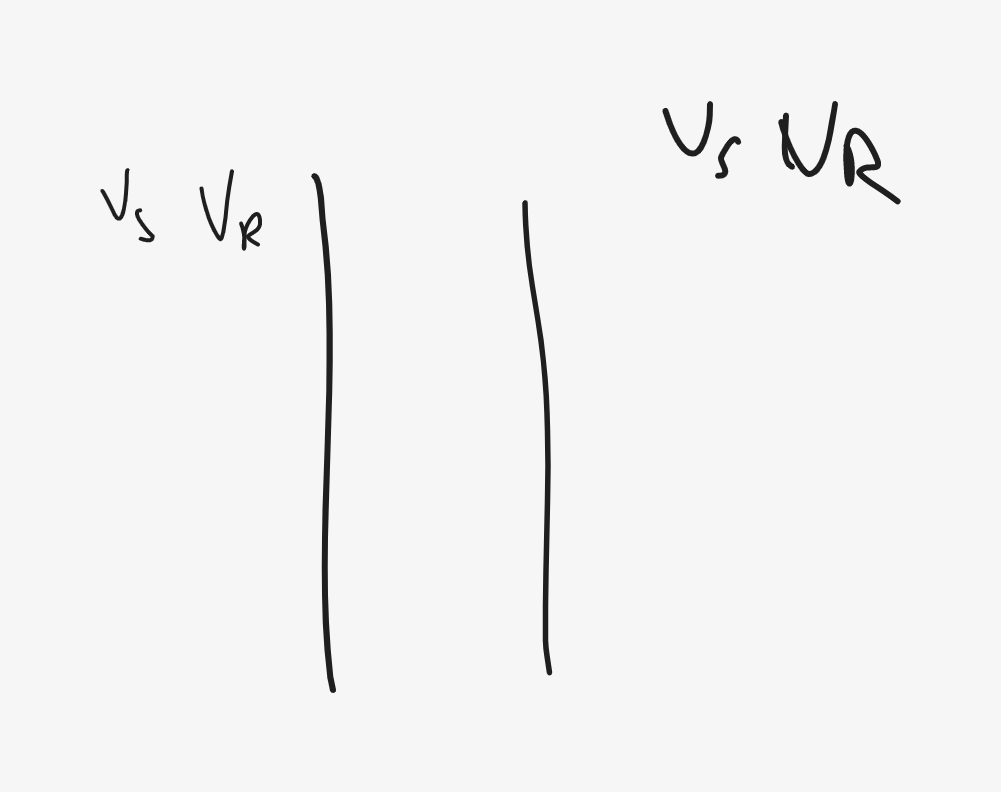 Vs VR
Vs VR